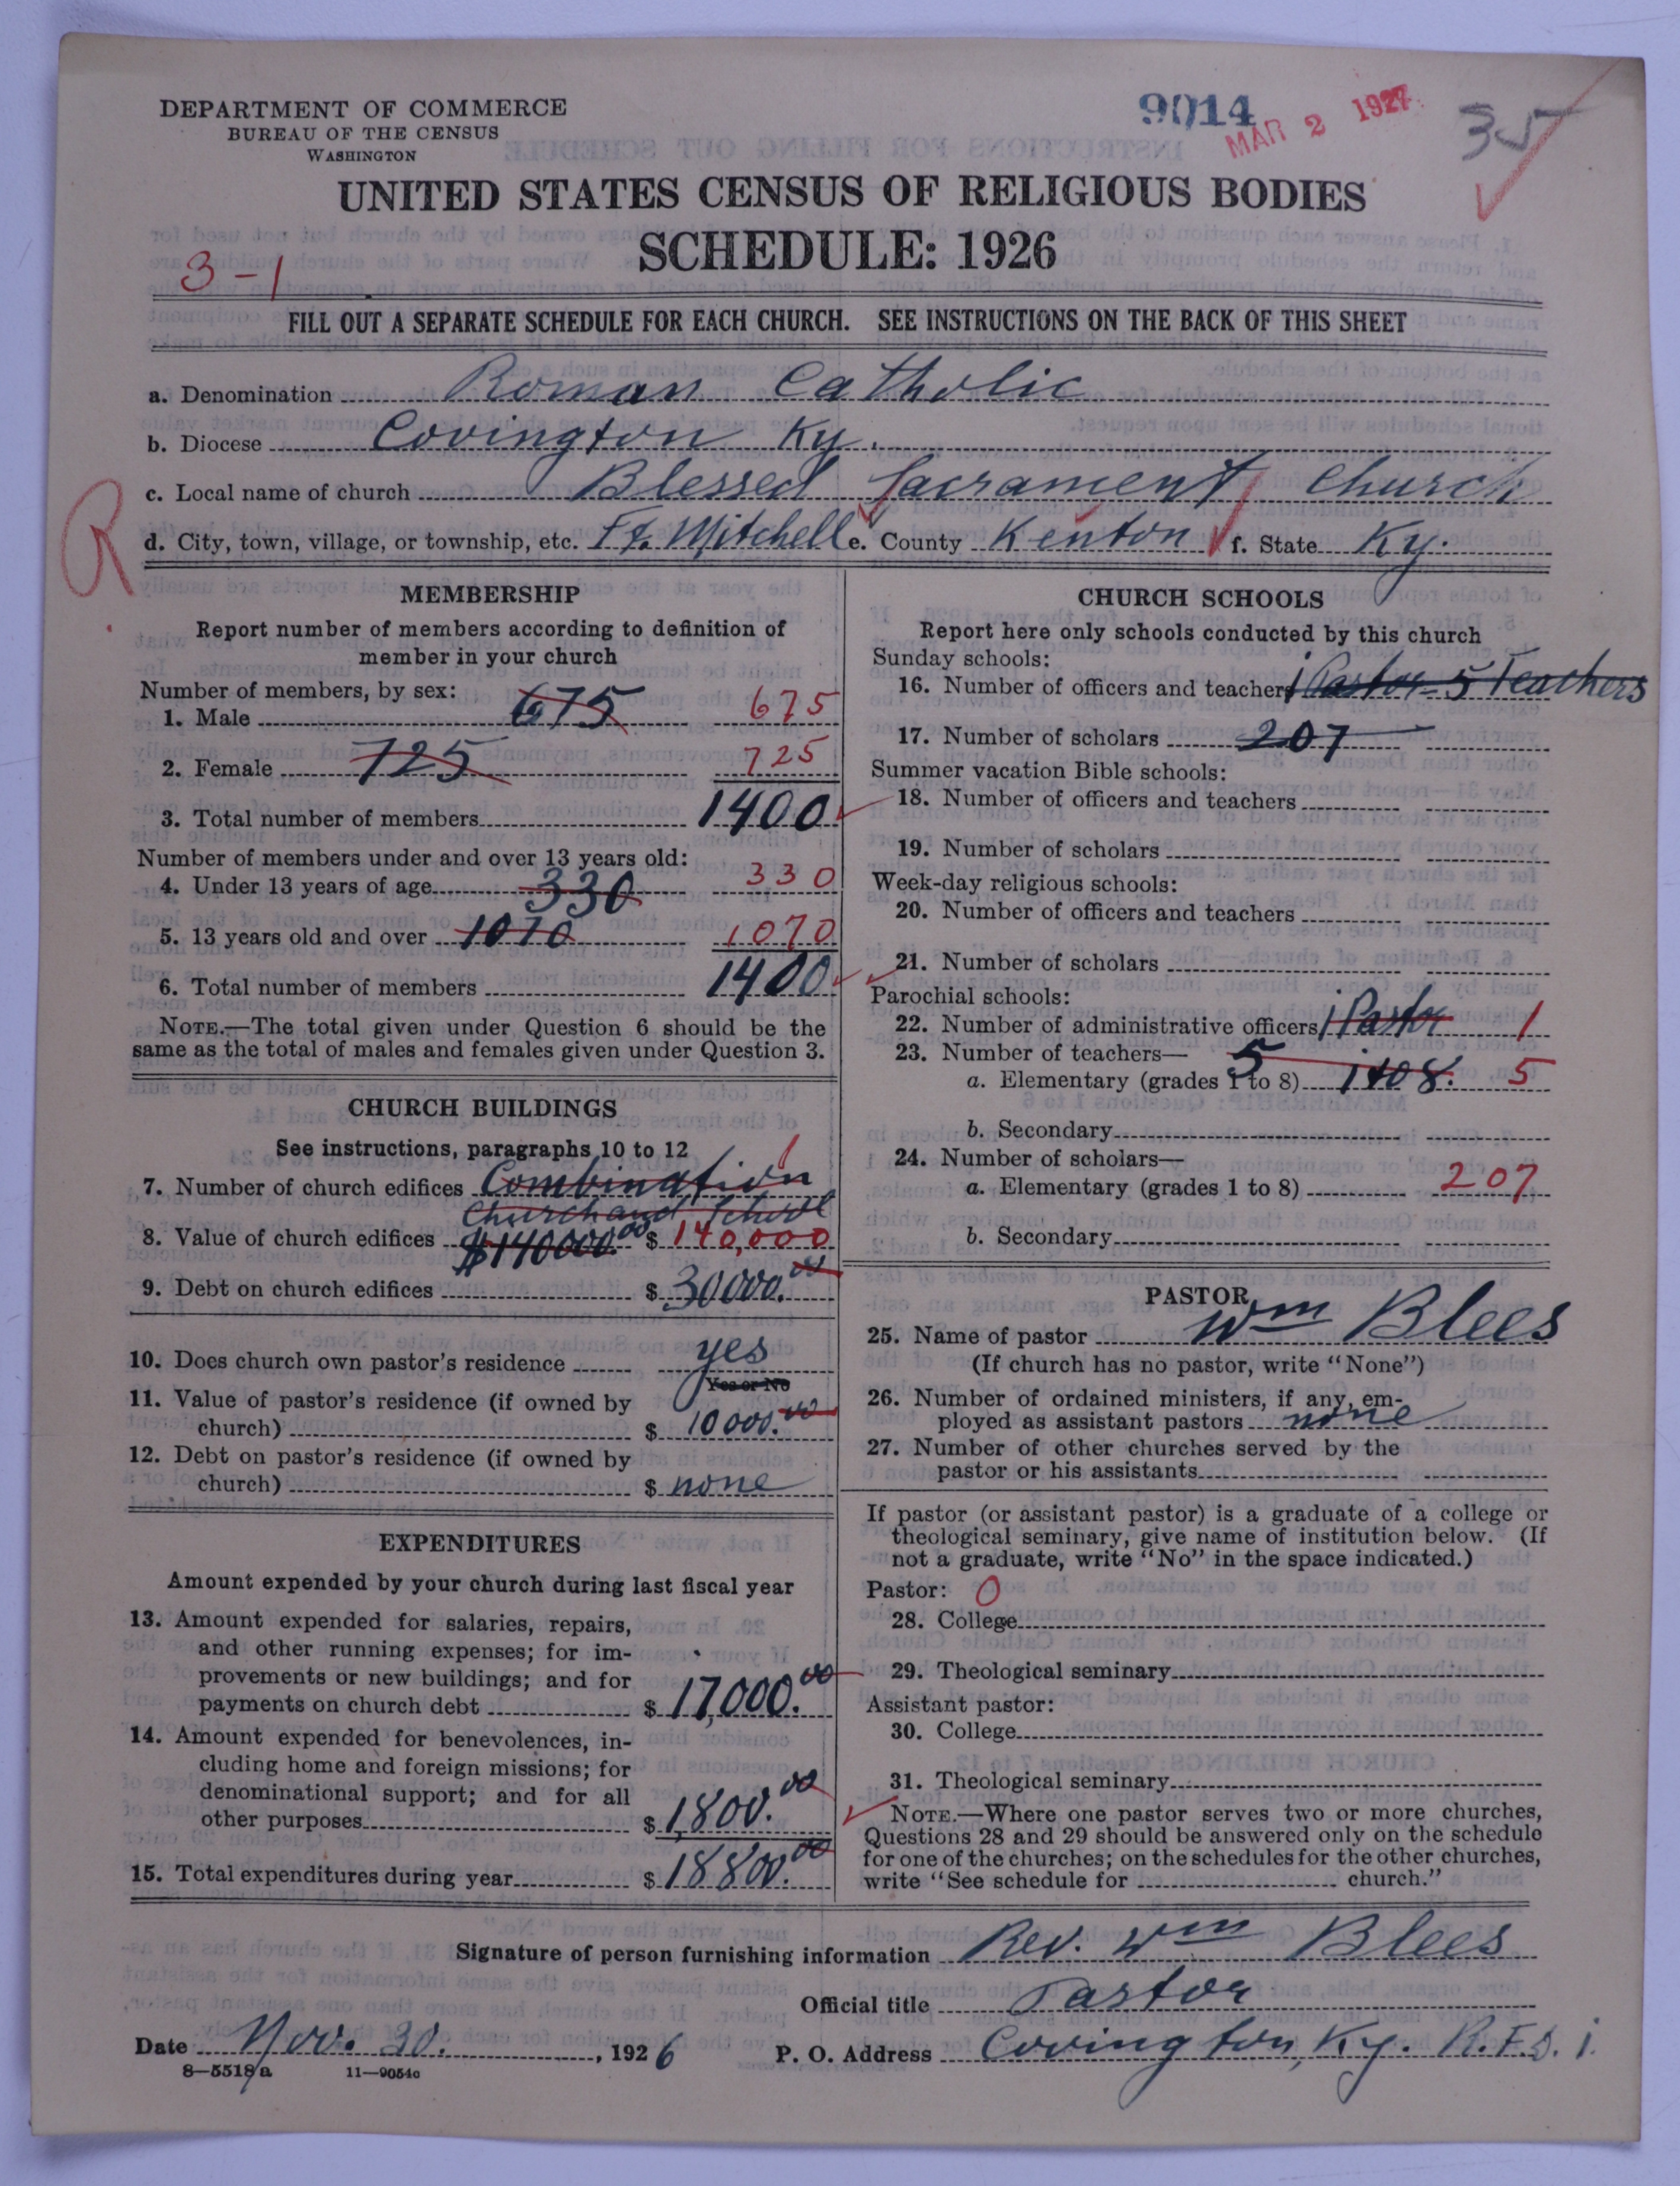 DEPARTMENT OF COMMERCE
BUREAU OF THE CENSUS
WASHINGTON
9014
MAR 2 1927
35
UNITED STATES CENSUS OF RELIGIOUS BODIES
SCHEDULE: 1926
3-1
FILL OUT A SEPARATE SCHEDULE FOR EACH CHURCH. SEE INSTRUCTIONS ON THE BACK OF THIS SHEET
a. Denomination Roman Catholic
b. Diocese Covington Ky.
c. Local name of church Blessed Sacrament Church
R
d. City, town, village, or township, etc. Ft. Mitchell e. County Kenton f. State Ky.
MEMBERSHIP
Report number of members according to definition of
member in your church
Number of members, by sex:
1. Male 675 675
2. Female 725 725
3. Total number of members 1400
Number of members under and over 13 years old:
4. Under 13 years of age 330 330
5. 13 years old and over 1070 1070
6. Total number of members 1400
NOTE.—The total given under Question 6 should be the
same as the total of males and females given under Question 3.
CHURCH BUILDINGS
See instructions, paragraphs 10 to 12
7. Number of church edifices Combination 1
Church and School
8. Value of church edifices $140000.00 $ 140,000
9. Debt on church edifices $ 30000.00
10. Does church own pastor's residence yes
Yes or No
11. Value of pastor's residence (if owned by
church) $ 10000.00
12. Debt on pastor's residence (if owned by
church) $ none
EXPENDITURES
Amount expended by your church during last fiscal year
13. Amount expended for salaries, repairs,
and other running expenses; for im-
provements or new buildings; and for
payments on church debt $ 17,000.00
14. Amount expended for benevolences, in-
cluding home and foreign missions; for
denominational support; and for all
other purposes $ 1,800.00
15. Total expenditures during year $ 18800.00
CHURCH SCHOOLS
Report here only schools conducted by this church
Sunday schools:
16. Number of officers and teachers 1 Pastor - 5 Teachers
17. Number of scholars 207
Summer vacation Bible schools:
18. Number of officers and teachers
19. Number of scholars
Week-day religious schools:
20. Number of officers and teachers
21. Number of scholars
Parochial schools:
22. Number of administrative officers 1 Pastor 1
23. Number of teachers— 5
a. Elementary (grades 1 to 8) 1 to 8. 5
b. Secondary
24. Number of scholars—
a. Elementary (grades 1 to 8) 207
b. Secondary
PASTOR
25. Name of pastor Wm Blees
(If church has no pastor, write "None")
26. Number of ordained ministers, if any, em-
ployed as assistant pastors none
27. Number of other churches served by the
pastor or his assistants
If pastor (or assistant pastor) is a graduate of a college or
theological seminary, give name of institution below. (If
not a graduate, write "No" in the space indicated.)
Pastor: 0
28. College
29. Theological seminary
Assistant pastor:
30. College
31. Theological seminary
NOTE.—Where one pastor serves two or more churches,
Questions 28 and 29 should be answered only on the schedule
for one of the churches; on the schedules for the other churches,
write "See schedule for church."
Signature of person furnishing information Rev. Wm Blees
Official title Pastor
Date Nov. 30. , 1926 P. O. Address Covington, Ky. R.F.D. 1.
8—5518 a 11—9054c